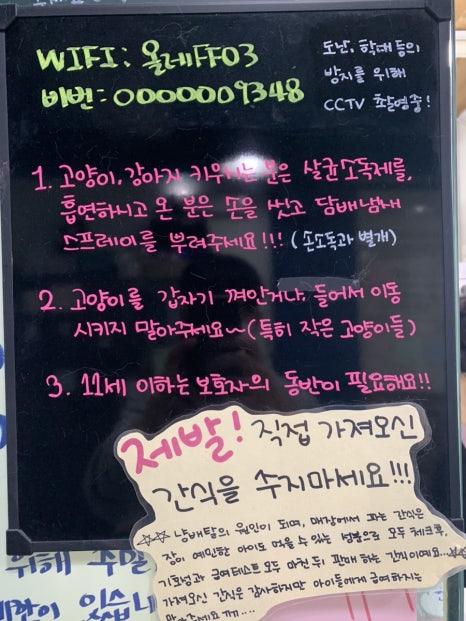 WIFI: 올레FF03
비번: 0000009348
도난, 학대 등의
방지를 위해
CCTV 촬영중!
1. 고양이, 강아지 키우시는 분은 살균소독제를,
흡연하시고 온 분은 손을 씻고 담배냄새
스프레이를 뿌려주세요!!! (손소독과 별개)
2. 고양이를 갑자기 껴안거나, 들어서 이동
시키지 말아주세요~ (특히 작은 고양이들)
3. 11세 이하는 보호자의 동반이 필요해요!!
제발! 직접 가져오신
간식을 주지마세요!!!
☆☆ 냥배탈의 원인이 되며, 매장에서 파는 간식은
장이 예민한 아이도 먹을 수 있는 성분으로 모두 체크후,
기호성과 급여테스트 모두 마친 뒤 판매하는 간식이에요..☆☆
가져오신 간식은 감사하지만 아이들에게 급여하지는
위해 주말